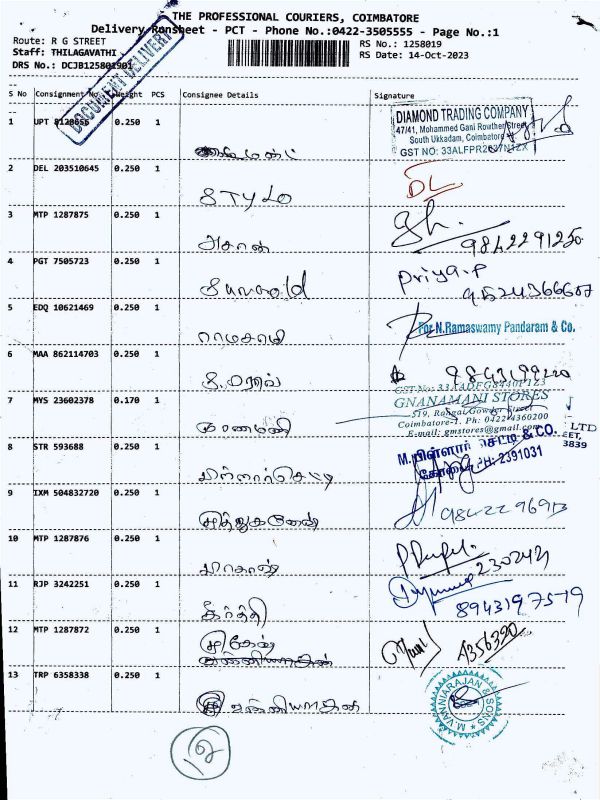 THE PROFESSIONAL COURIERS, COIMBATORE
Delivery Runsheet - PCT - Phone No.:0422-3505555 - Page No.:1
Route: R G STREET
RS No.: 1258019
Staff: THILAGAVATHI
RS Date: 14-Oct-2023
DRS No.: DCJB125801901
DOCUMENT DELIVERY
S No Consignment No Weight PCS Consignee Details Signature
1 UPT 0.250 1
DIAMOND TRADING COMPANY
47/41, Mohammed Gani Rowther Street
South Ukkadam, Coimbatore
GST NO: 33ALFPR2627N1ZX
2 DEL 203510645 0.250 1 STYLO DL
3 MTP 1287875 0.250 1 அசோன் 9842291250
4 PGT 7505723 0.250 1 Priya.P
5 EDQ 10621469 0.250 1 ராமசாமி For N.Ramaswamy Pandaram & Co.
6 MAA 862114703 0.250 1
7 MYS 23602378 0.170 1 குணமணி
GNANAMANI STORES
519, Rangai Gowder Street
Coimbatore-1. Ph: 0422-4360200
E-mail: gmstores@gmail.com
LTD
EET,
3839
8 STR 593688 0.250 1 பிள்ளார்செட்டி
M.பிள்ளார் செட்டி & CO.
கோவை PH: 2391031
9 IXM 504832720 0.250 1
10 MTP 1287876 0.250 1 2302421
11 RJP 3242251 0.250 1 கீர்த்தி 8943197519
12 MTP 1287872 0.250 1 4356390
13 TRP 6358338 0.250 1 வன்னியராஜன்
M.VANNIARAJAN & SONS